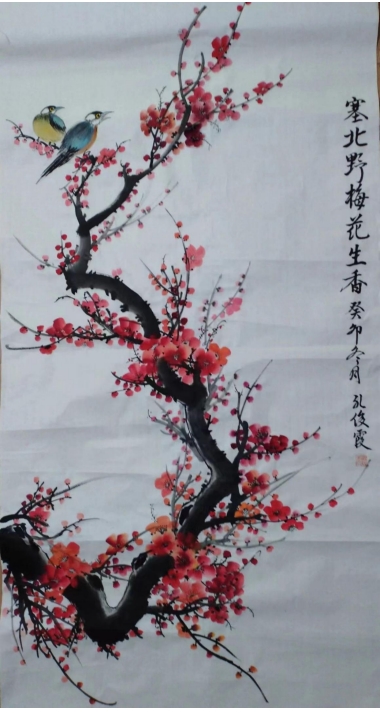 塞北野梅花生香 癸卯冬月 孔俊霞